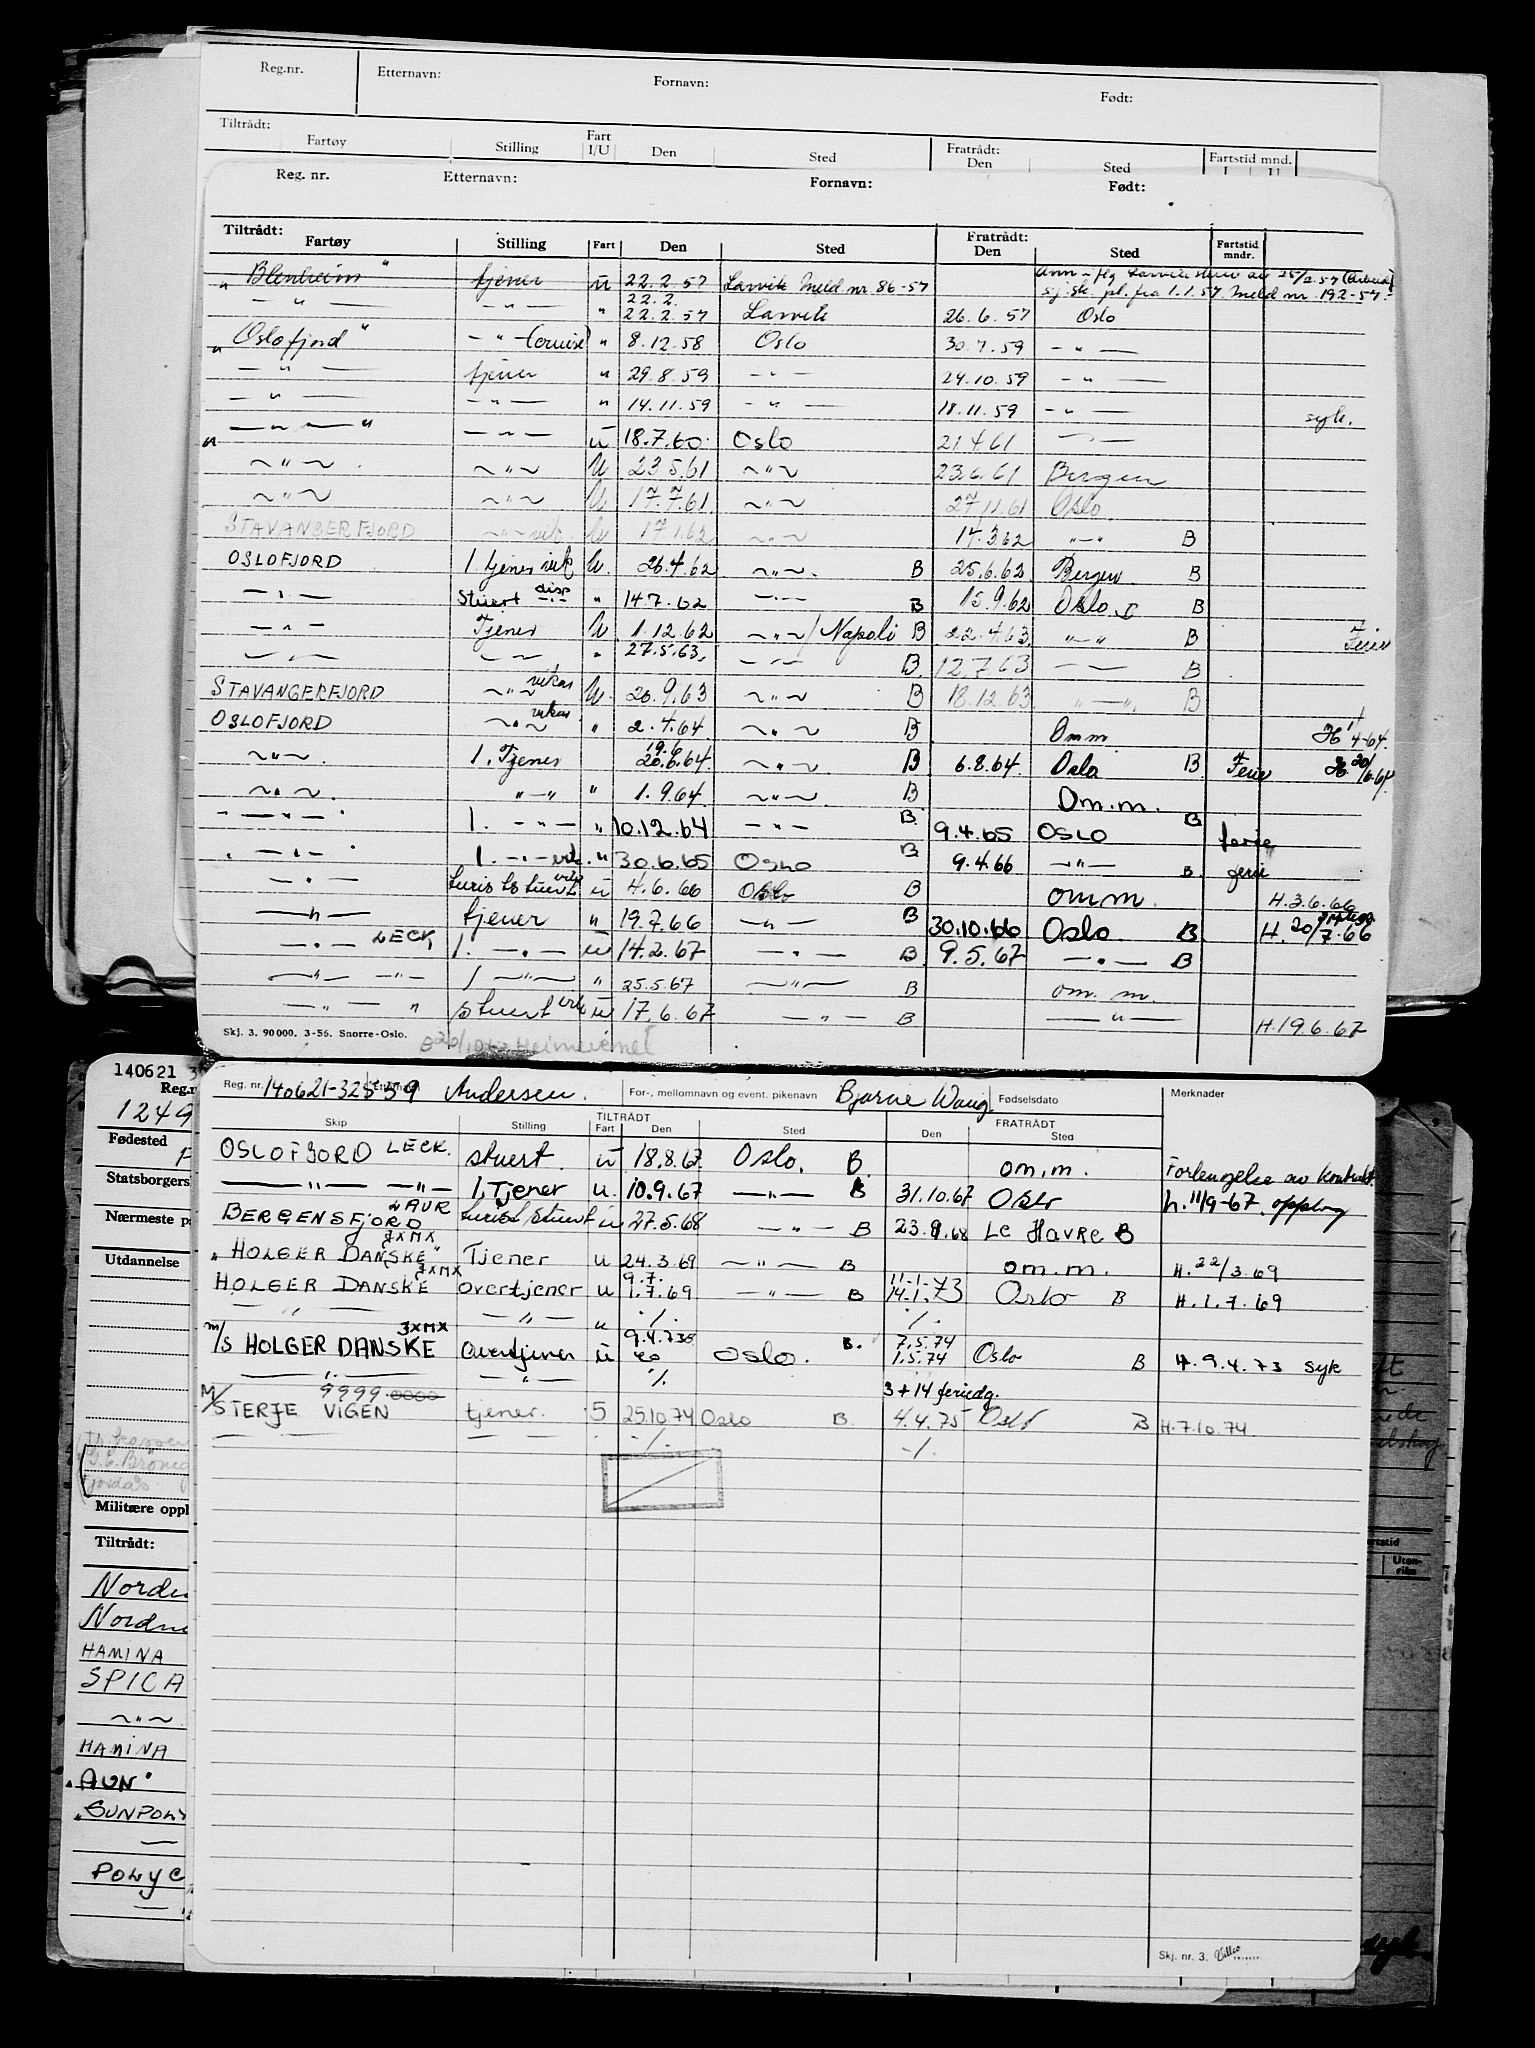 Reg.nr. Etternavn: Fornavn: Født:
Tiltrådt: Fartøy Stilling Fart I/U Den Sted Fratrådt: Den Sted Fartstid mnd.
Reg. nr. Etternavn: Fornavn: Født:
Tiltrådt: Fratrådt:
Fartøy Stilling Fart Den Sted Den Sted Fartstid mndr.
"Blenheim" tjener u 22.2.57 Larvik Meld nr. 86-57
sj. sk. pl. fra 1.1.57. Meld nr 192-57.
— " — — " — " 22.2. 22.2.57 Larvik 26.6.57 Oslo
"Oslofjord" — " — (cruise) " 8.12.58 Oslo 30.7.59 — " —
— " — tjener " 29.8.59 — " — 24.10.59 — " —
— " — — " — " 14.11.59 — " — 18.11.59 — " — syk.
" — " — " — " — u 18.7.60. Oslo 21.4.61 — " —
~ " ~ ~ " ~ U 23.5.61 ~ " ~ 23.6.61 Bergen
~ " ~ ~ " ~ U 17.7.61. ~ " ~ 27.11.61 Oslo
STAVANGERFJORD ~ " ~ vik. U 17.1.62 ~ " ~ 14.3.62 " — " B
OSLOFJORD 1. tjener vik U. 26.4.62 ~ " ~. B 25.6.62 Bergen B
— " — Stuert disp " 14.7.62 — " — B 15.9.62 Oslo B
— " — Tjener U 1.12.62 ~ " ~ / Napoli B 22.4.63. " — " B Ferie
— " — — " — " 27.5.63. — " — B. 12.7.63 — " — B
STAVANGERFJORD ~ " ~ vikar U. 20.9.63 ~ " ~ B 18.12.63 " — ". B
OSLOFJORD ~ " ~ vikar " 2.4.64. ~ " ~ B Omm H 1/4-64.
~ " ~. 1. Tjener 19.6. 20.6.64. ~ " ~. B 6.8.64. Oslo B Ferie H 20/6-64.
~ " ~. " — " " 1.9.64. ~ " ~. B Om.m.
" — " — " 1. — " — " 10.12.64 — " — B 9.4.65 OSLO B ferie
" — " — " 1. — " — vik. " 30.6.65 OSLO B 9.4.66 — " — B ferie
— " — turist stuert vik u 4.6.66 Oslo B omm. H.3.6.66
— " — tjener " 19.7.66 — " — B 30.10.66 Oslo B. H. 20/7.66
— " — LECK 1. — " — u 14.2.67 — " — B 9.5.67 — " — B
— " — — " — 1 — " — " 25.5.67 — " — B om. m.
— " — " stuert vik u 17.6.67 — " — B — " — H.19.6.67
Skj. 3. 90 000. 3-56. Snorre-Oslo.
140621
Reg.n
1249
Fødested
Statsborgers
Nærmeste p
Utdannelse
Militære oppl
Tiltrådt:
Norden
HAMINA
SPICA
~ " ~.
HAMINA
"AUN"
—
—
Reg. nr. 140621-32559 Etternavn Andersen. For-, mellomnavn og event. pikenavn Bjarne Wang. Fødselsdato Merknader
TILTRÅDT FRATRÅDT
Skip Stilling Fart Den Sted Den Sted
OSLOFJORD LECK. stuert. u 18.8.67. Oslo. B. om.m. Forlengelse av kontrakt
— " — — " — 1. Tjener u. 10.9.67 — " — B 31.10.67 Oslo h. 11/9-67. opplag
BERGENSFJORD LAUR turist stuert u 27.5.68 — " — B 23.9.68 Le Havre B
"HOLGER DANSKE" JXMX Tjener u 24.3.69 — " — B om.m. H. 22/3.69
HOLGER DANSKE JXMX overtjener u 9.7. 1.7.69 — " — B 11-1-73 14-1-73 Oslo B H.1.7.69
— " — — " — " ./. ./.
m/s HOLGER DANSKE JXMX overtjener u 9.4.73 Oslo. B. 7.5.74 1.5.74 Oslo B H.9.4.73 syk
— " — — " — ./. 3+14 feriedg.
M/S TERJE VIGEN 9999 0000 tjener. 5 25.10.74 Oslo B. 4.4.75 Oslo B H.7.10.74
— — — — . ./. ./.
Skj. nr. 3.
syk.